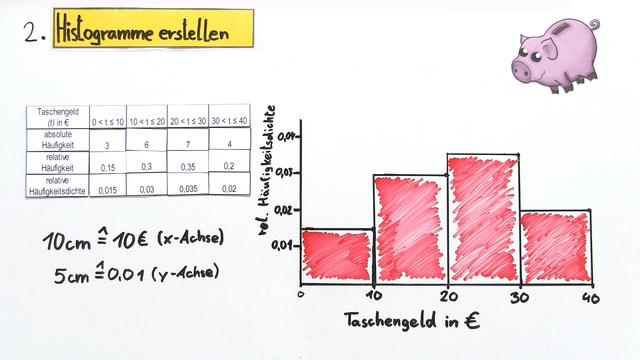 2. Histogramme erstellen
Taschengeld (t) in € 0 < t ≤ 10 10 < t ≤ 20 20 < t ≤ 30 30 < t ≤ 40
absolute Häufigkeit 3 6 7 4
relative Häufigkeit 0,15 0,3 0,35 0,2
relative Häufigkeitsdichte 0,015 0,03 0,035 0,02
10cm ≙ 10€ (x-Achse)
5cm ≙ 0.01 (y-Achse)
rel. Häufigkeitsdichte
0,04
0,03
0,02
0,01
0 10 20 30 40
Taschengeld in €